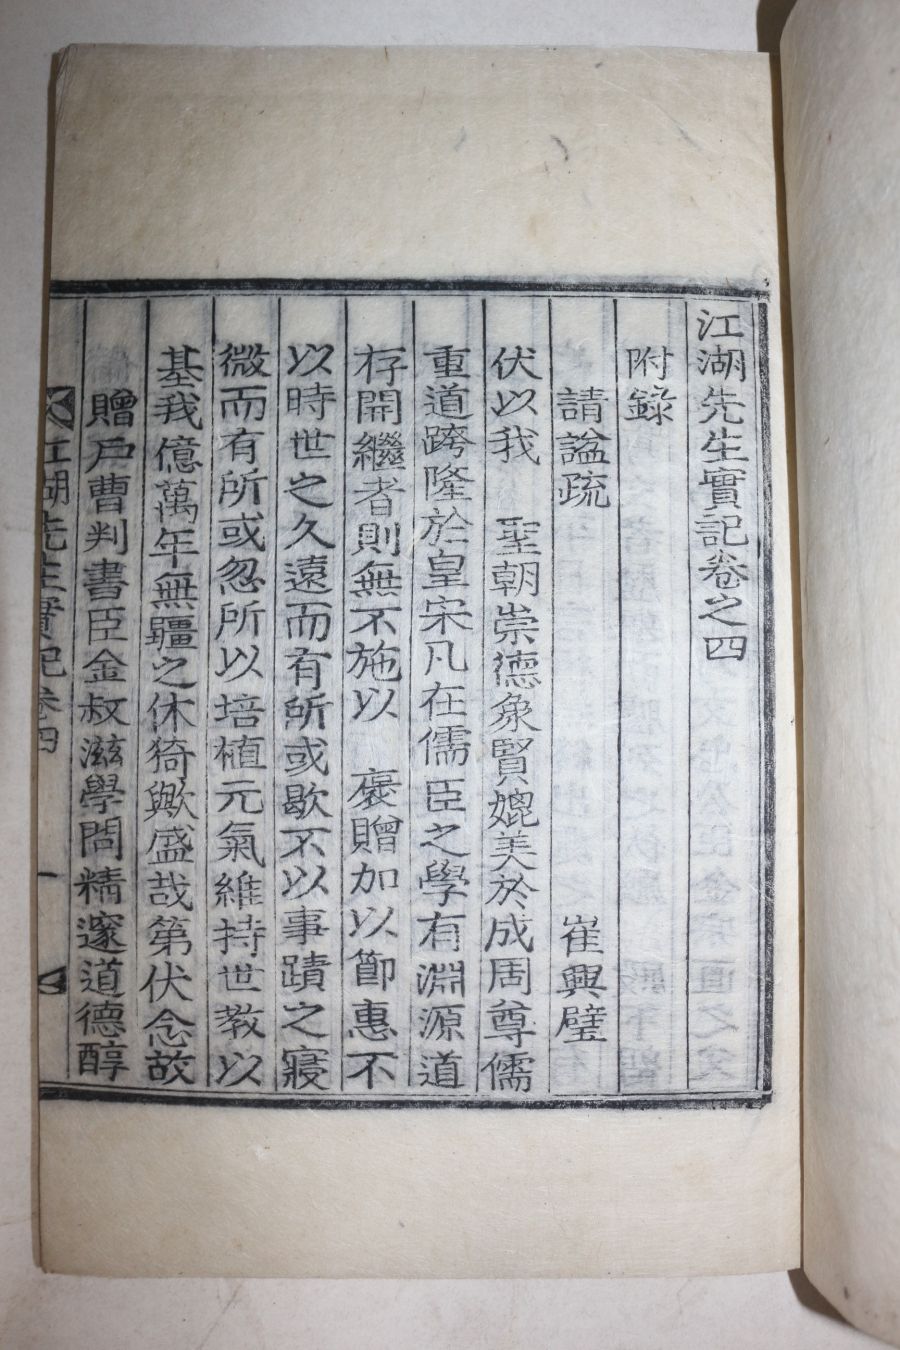 江湖先生實記卷之四
附錄
請諡疏 崔興璧
伏以我 聖朝崇德象賢媲美於成周尊儒
重道跨隆於皇宋凡在儒臣之學有淵源道
存開繼者則無不施以 褒贈加以節惠不
以時世之久遠而有所或歇不以事蹟之寢
微而有所或忽所以培植元氣維持世教以
基我億萬年無疆之休猗歟盛哉第伏念故
贈戶曹判書臣金叔滋學問精邃道德醇
江湖先生實記卷四 一